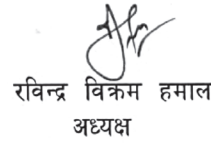 रविन्द्र विक्रम हमाल
अध्यक्ष